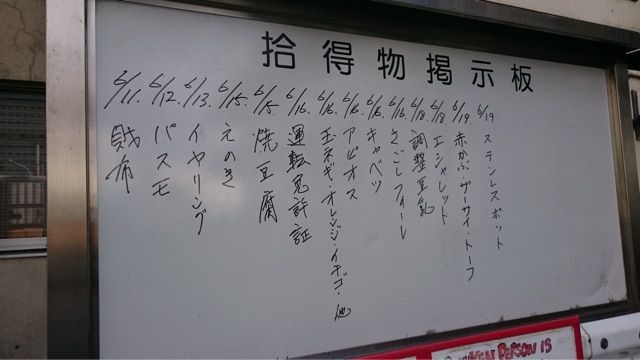 拾得物掲示板
6/11. 財布
6/12. パスモ
6/13. イヤリング
6/15. えのき
6/15. 焼豆腐
6/16. 運転免許証
6/16. 玉ネギ・オレンジ・イチゴ・他
6/16. アピオス
6/16. キャベツ
6/16. さごしフィーレ
6/18. 調整豆乳
6/18 エシャレット
6/19. 赤かぶ・ザーサイ・トーフ
6/19 ステンレスポット
PERSON IS